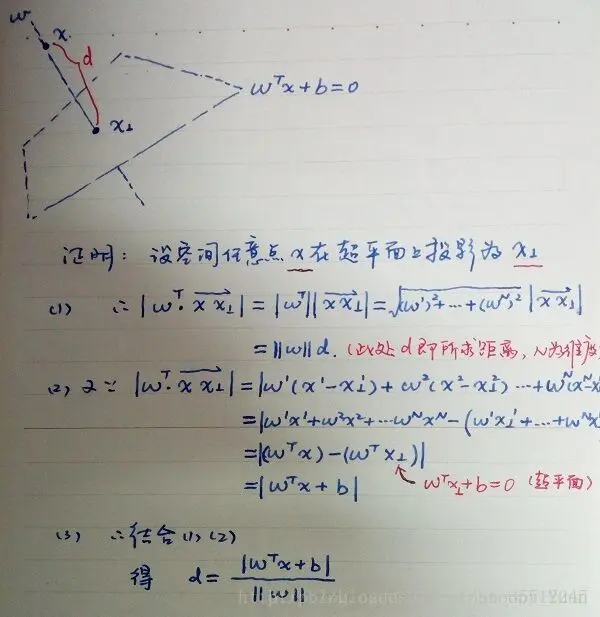 w
x
d
x⊥
wᵀx+b=0
证明: 设空间任意点 x 在超平面上投影为 x⊥
(1) ∴ |wᵀ·xx⊥| = |wᵀ||xx⊥| = √((w¹)²+⋯+(wᴺ)²) |xx⊥|
= ||w||d. (此处 d 即所求距离, N为维度
(2) 又∵ |wᵀ·xx⊥| = |w¹(x¹-x⊥¹)+w²(x²-x⊥²)⋯+wᴺ(xᴺ-x
= |w¹x¹+w²x²+⋯wᴺxᴺ-(w¹x⊥¹+⋯+wᴺx
= |(wᵀx)-(wᵀx⊥)|
= |wᵀx+b| wᵀx⊥+b=0 (超平面)
(3) ∴结合(1),(2)
得 d= |wᵀx+b| / ||w||